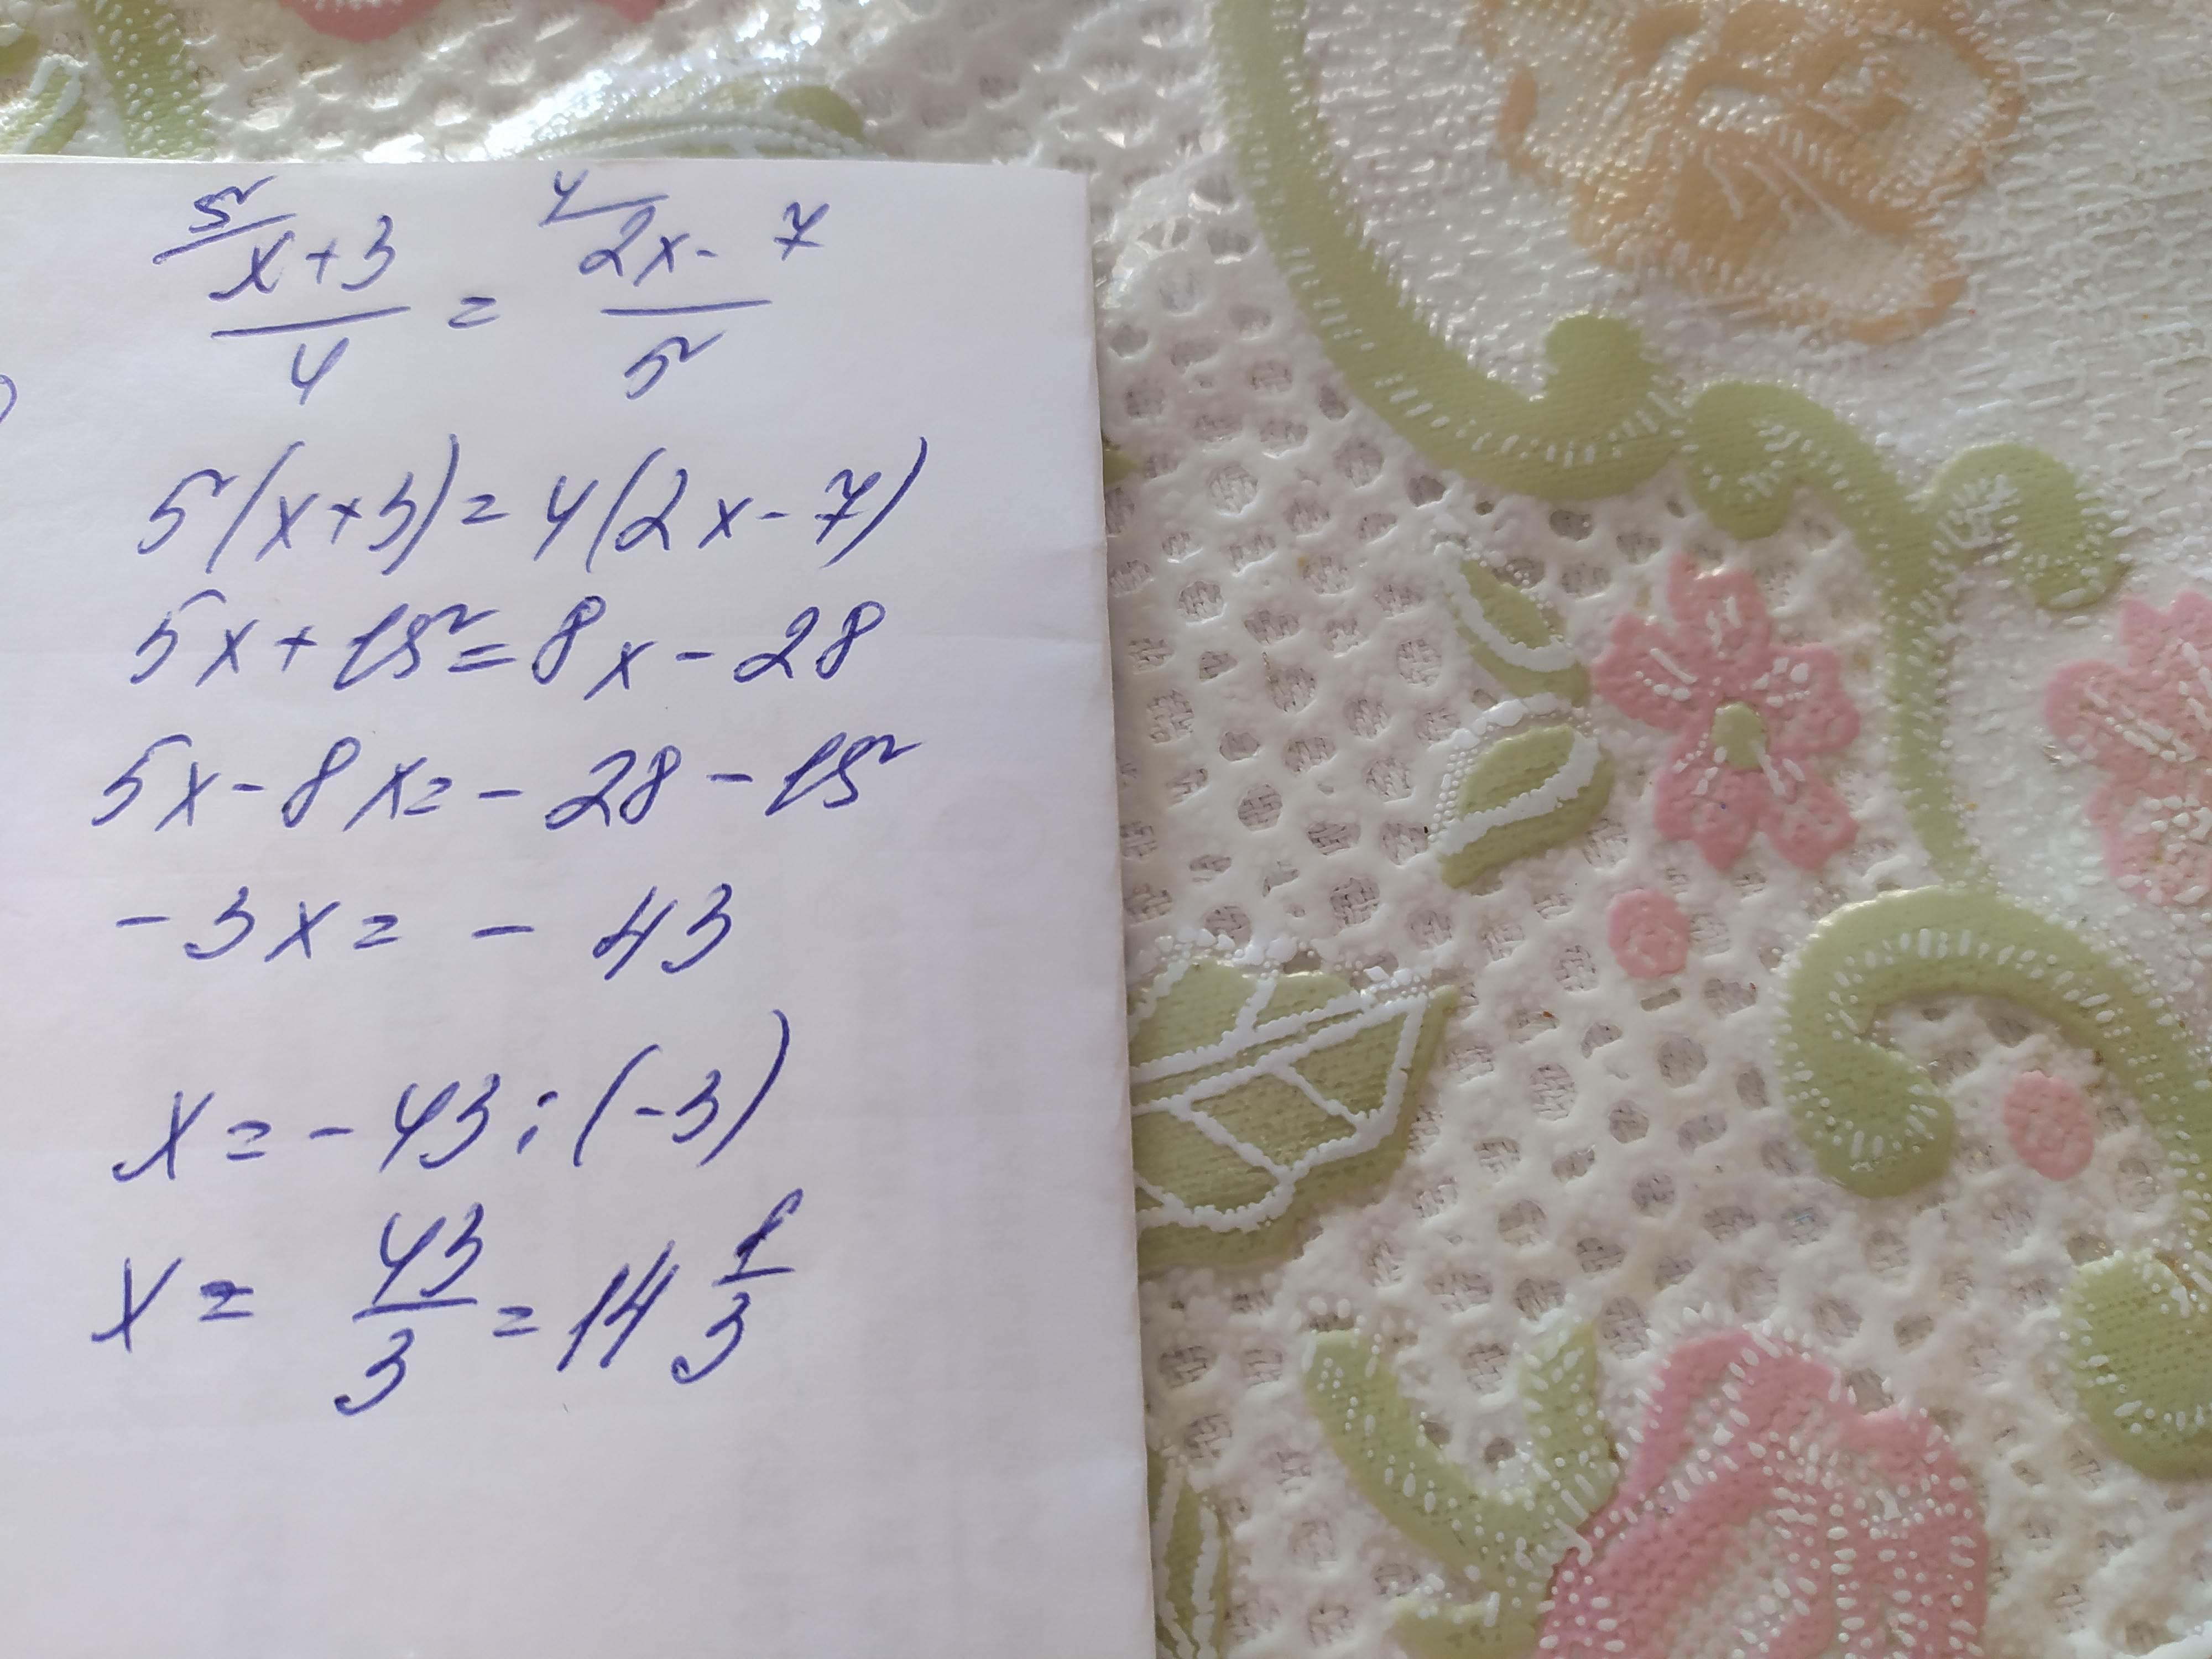 5/ (x+3)/4 = 4/ (2x-7)/5
5(x+3)=4(2x-7)
5x+15=8x-28
5x-8x=-28-15
-3x=-43
x=-43:(-3)
x=43/3=14 1/3